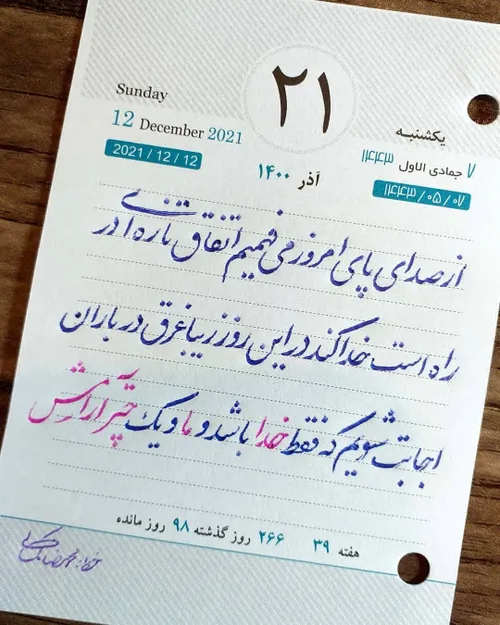 Sunday
۲۱
یکشنبه
12 December 2021
۷ جمادی الاول ۱۴۴۳
2021 / 12 / 12
آذر ۱۴۰۰
۱۴۴۳ / ۰۵ / ۰۷
از صدای پای امروز می فهمیم اتفاق تازه ای در
راه است خدا کند در این روز زیبا غرق در باران
اجابت شویم که فقط خدا باشد و ما و یک چتر آرامش
هفته ۳۹ ۲۶۶ روز گذشته ۹۸ روز مانده